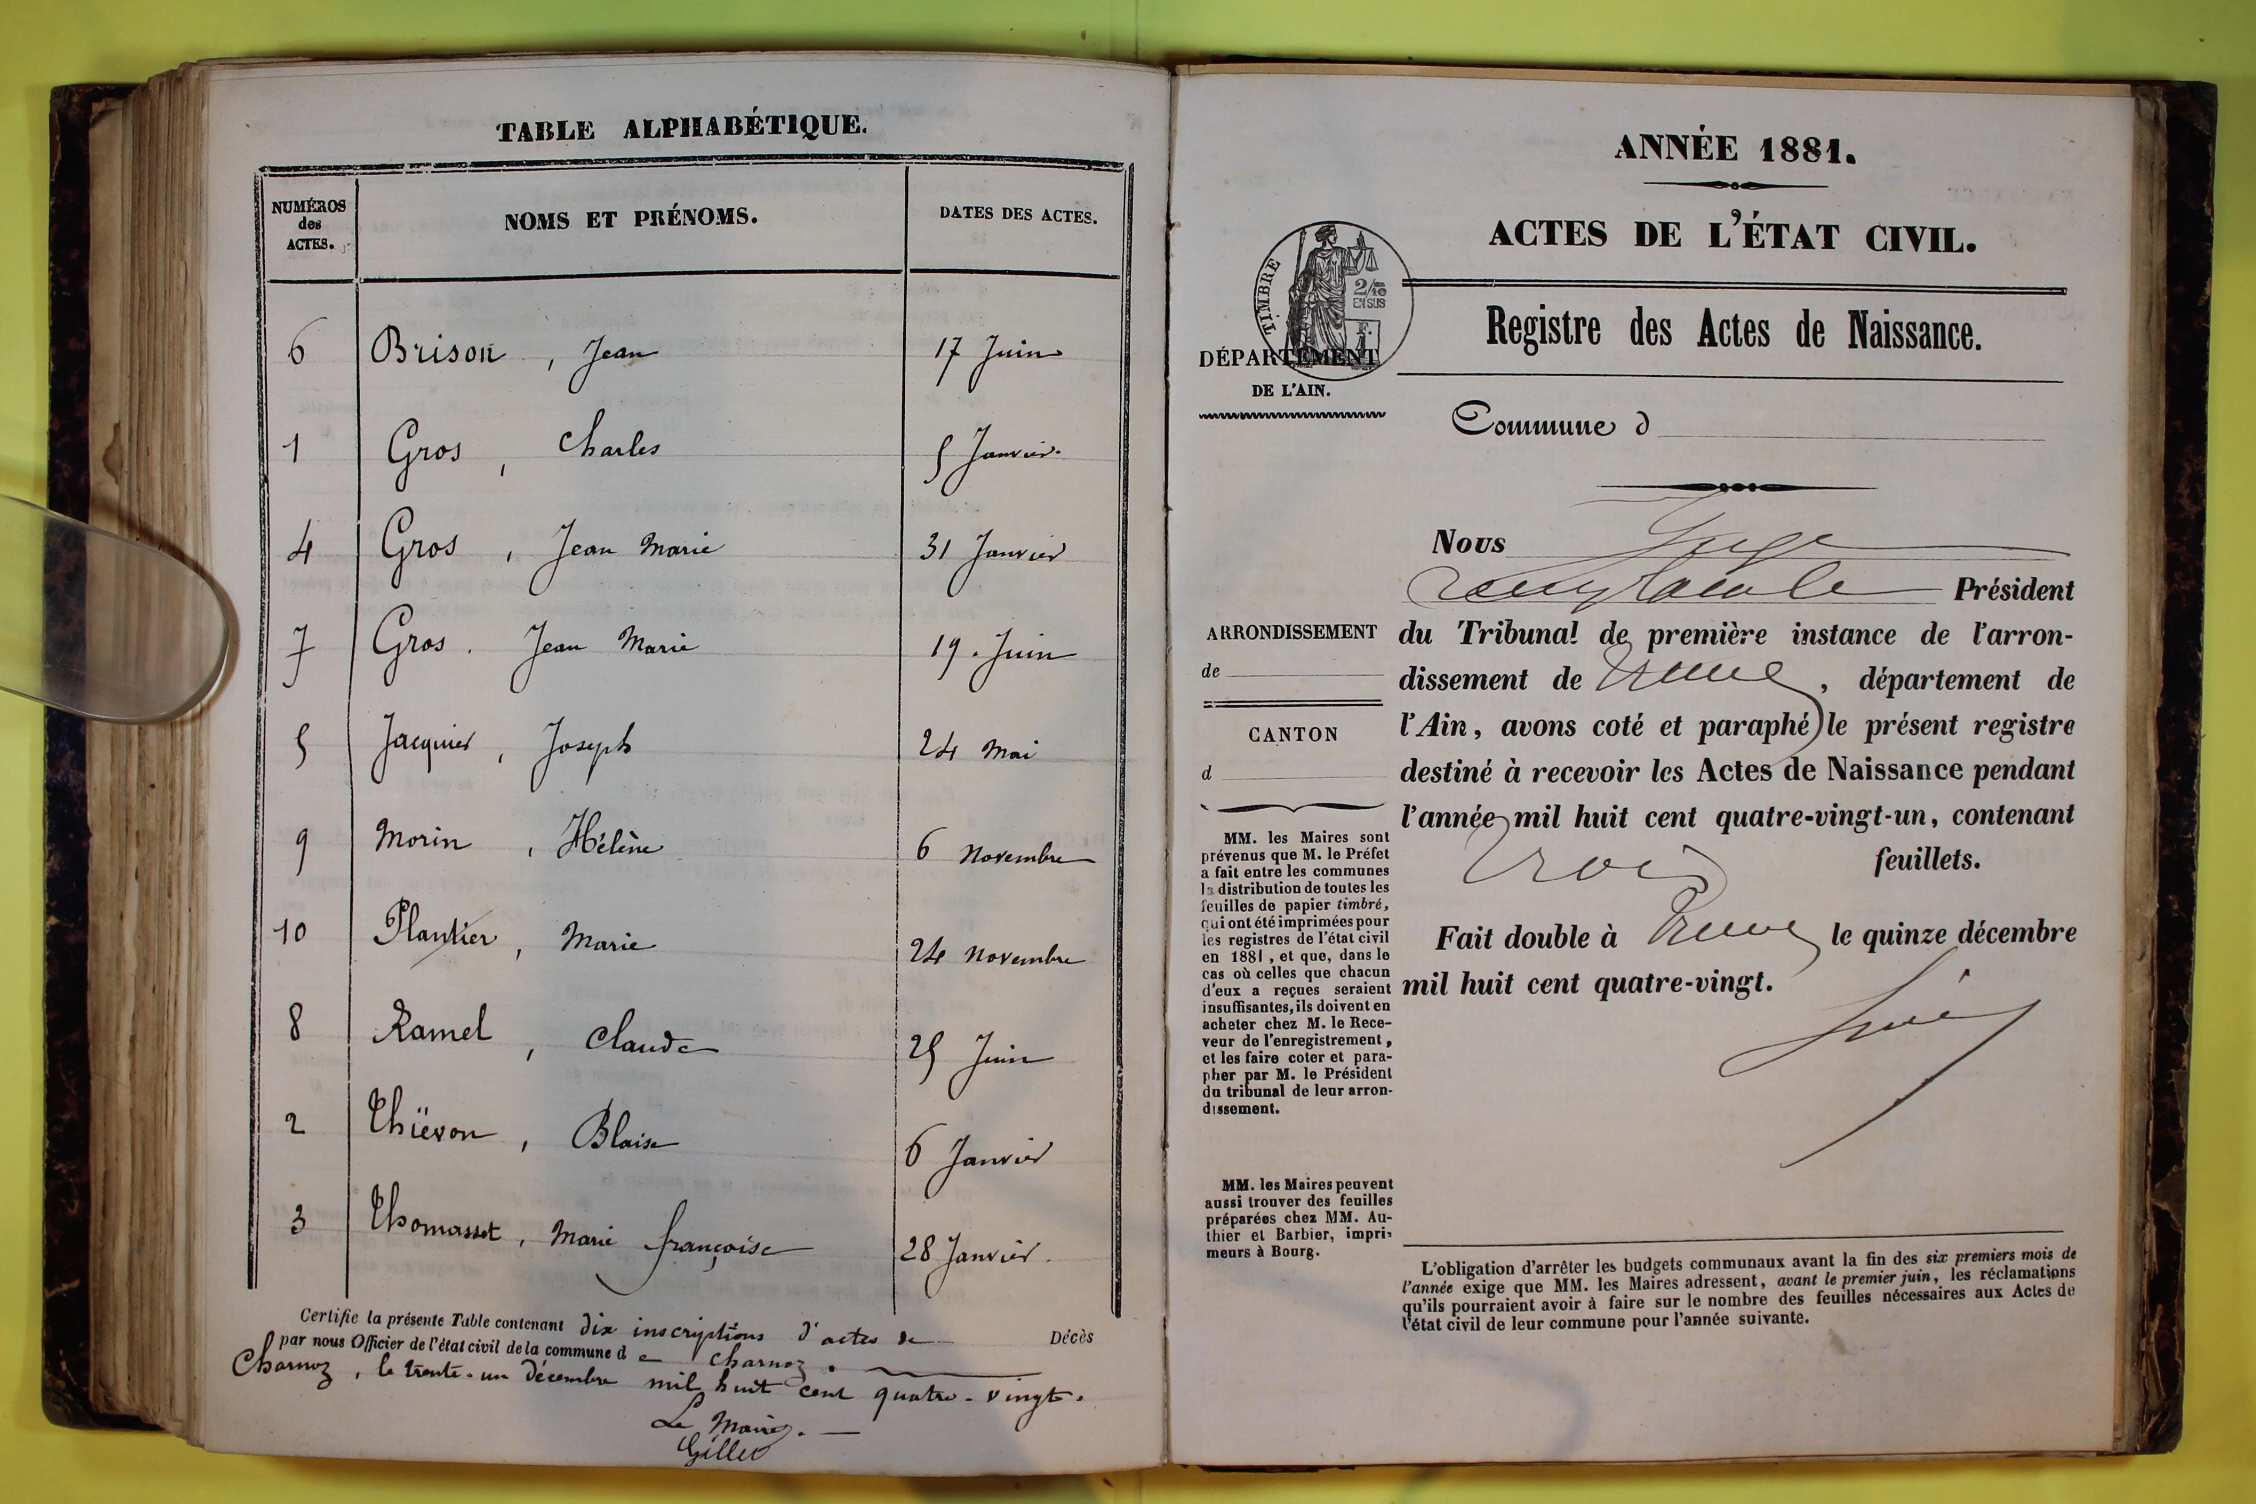 TABLE ALPHABÉTIQUE.
NUMÉROS des ACTES. NOMS ET PRÉNOMS. DATES DES ACTES.
6 Brison, Jean 17 Juin
1 Gros, Charles 5 Janvier.
4 Gros, Jean Marie 31 Janvier
7 Gros. Jean Marie 19. Juin
5 Jacquier, Joseph 24 Mai
9 Morin, Hélène 6 Novembre
10 Plantier, Marie 24 Novembre
8 Ramel, Claude 25 Juin
2 Thiévon, Blaise 6 Janvier
3 Thomasset, Marie françoise 28 Janvier.
Certifie la présente Table contenant dix inscriptions d'actes de Décès
par nous Officier de l'état civil de la commune de Charnoz.
Charnoz, le trente-un décembre mil huit cent quatre-vingt.
Le Maire.
Gillet
ANNÉE 1881.
ACTES DE L'ÉTAT CIVIL.
TIMBRE
2/10
EN SUS
Registre des Actes de Naissance.
DÉPARTEMENT
DE L'AIN.
Commune d
Nous Juge
Président
ARRONDISSEMENT
de
CANTON
d
du Tribunal de première instance de l'arron-
dissement de Trévoux, département de
l'Ain, avons coté et paraphé le présent registre
destiné à recevoir les Actes de Naissance pendant
l'année mil huit cent quatre-vingt-un, contenant
trois feuillets.
Fait double à Trévoux le quinze décembre
mil huit cent quatre-vingt.
MM. les Maires sont
prévenus que M. le Préfet
a fait entre les communes
la distribution de toutes les
feuilles de papier timbré,
qui ont été imprimées pour
les registres de l'état civil
en 1881, et que, dans le
cas où celles que chacun
d'eux a reçues seraient
insuffisantes, ils doivent en
acheter chez M. le Rece-
veur de l'enregistrement,
et les faire coter et para-
pher par M. le Président
du tribunal de leur arron-
dissement.
MM. les Maires peuvent
aussi trouver des feuilles
préparées chez MM. Au-
thier et Barbier, impri-
meurs à Bourg.
L'obligation d'arrêter les budgets communaux avant la fin des six premiers mois de
l'année exige que MM. les Maires adressent, avant le premier juin, les réclamations
qu'ils pourraient avoir à faire sur le nombre des feuilles nécessaires aux Actes de
l'état civil de leur commune pour l'année suivante.